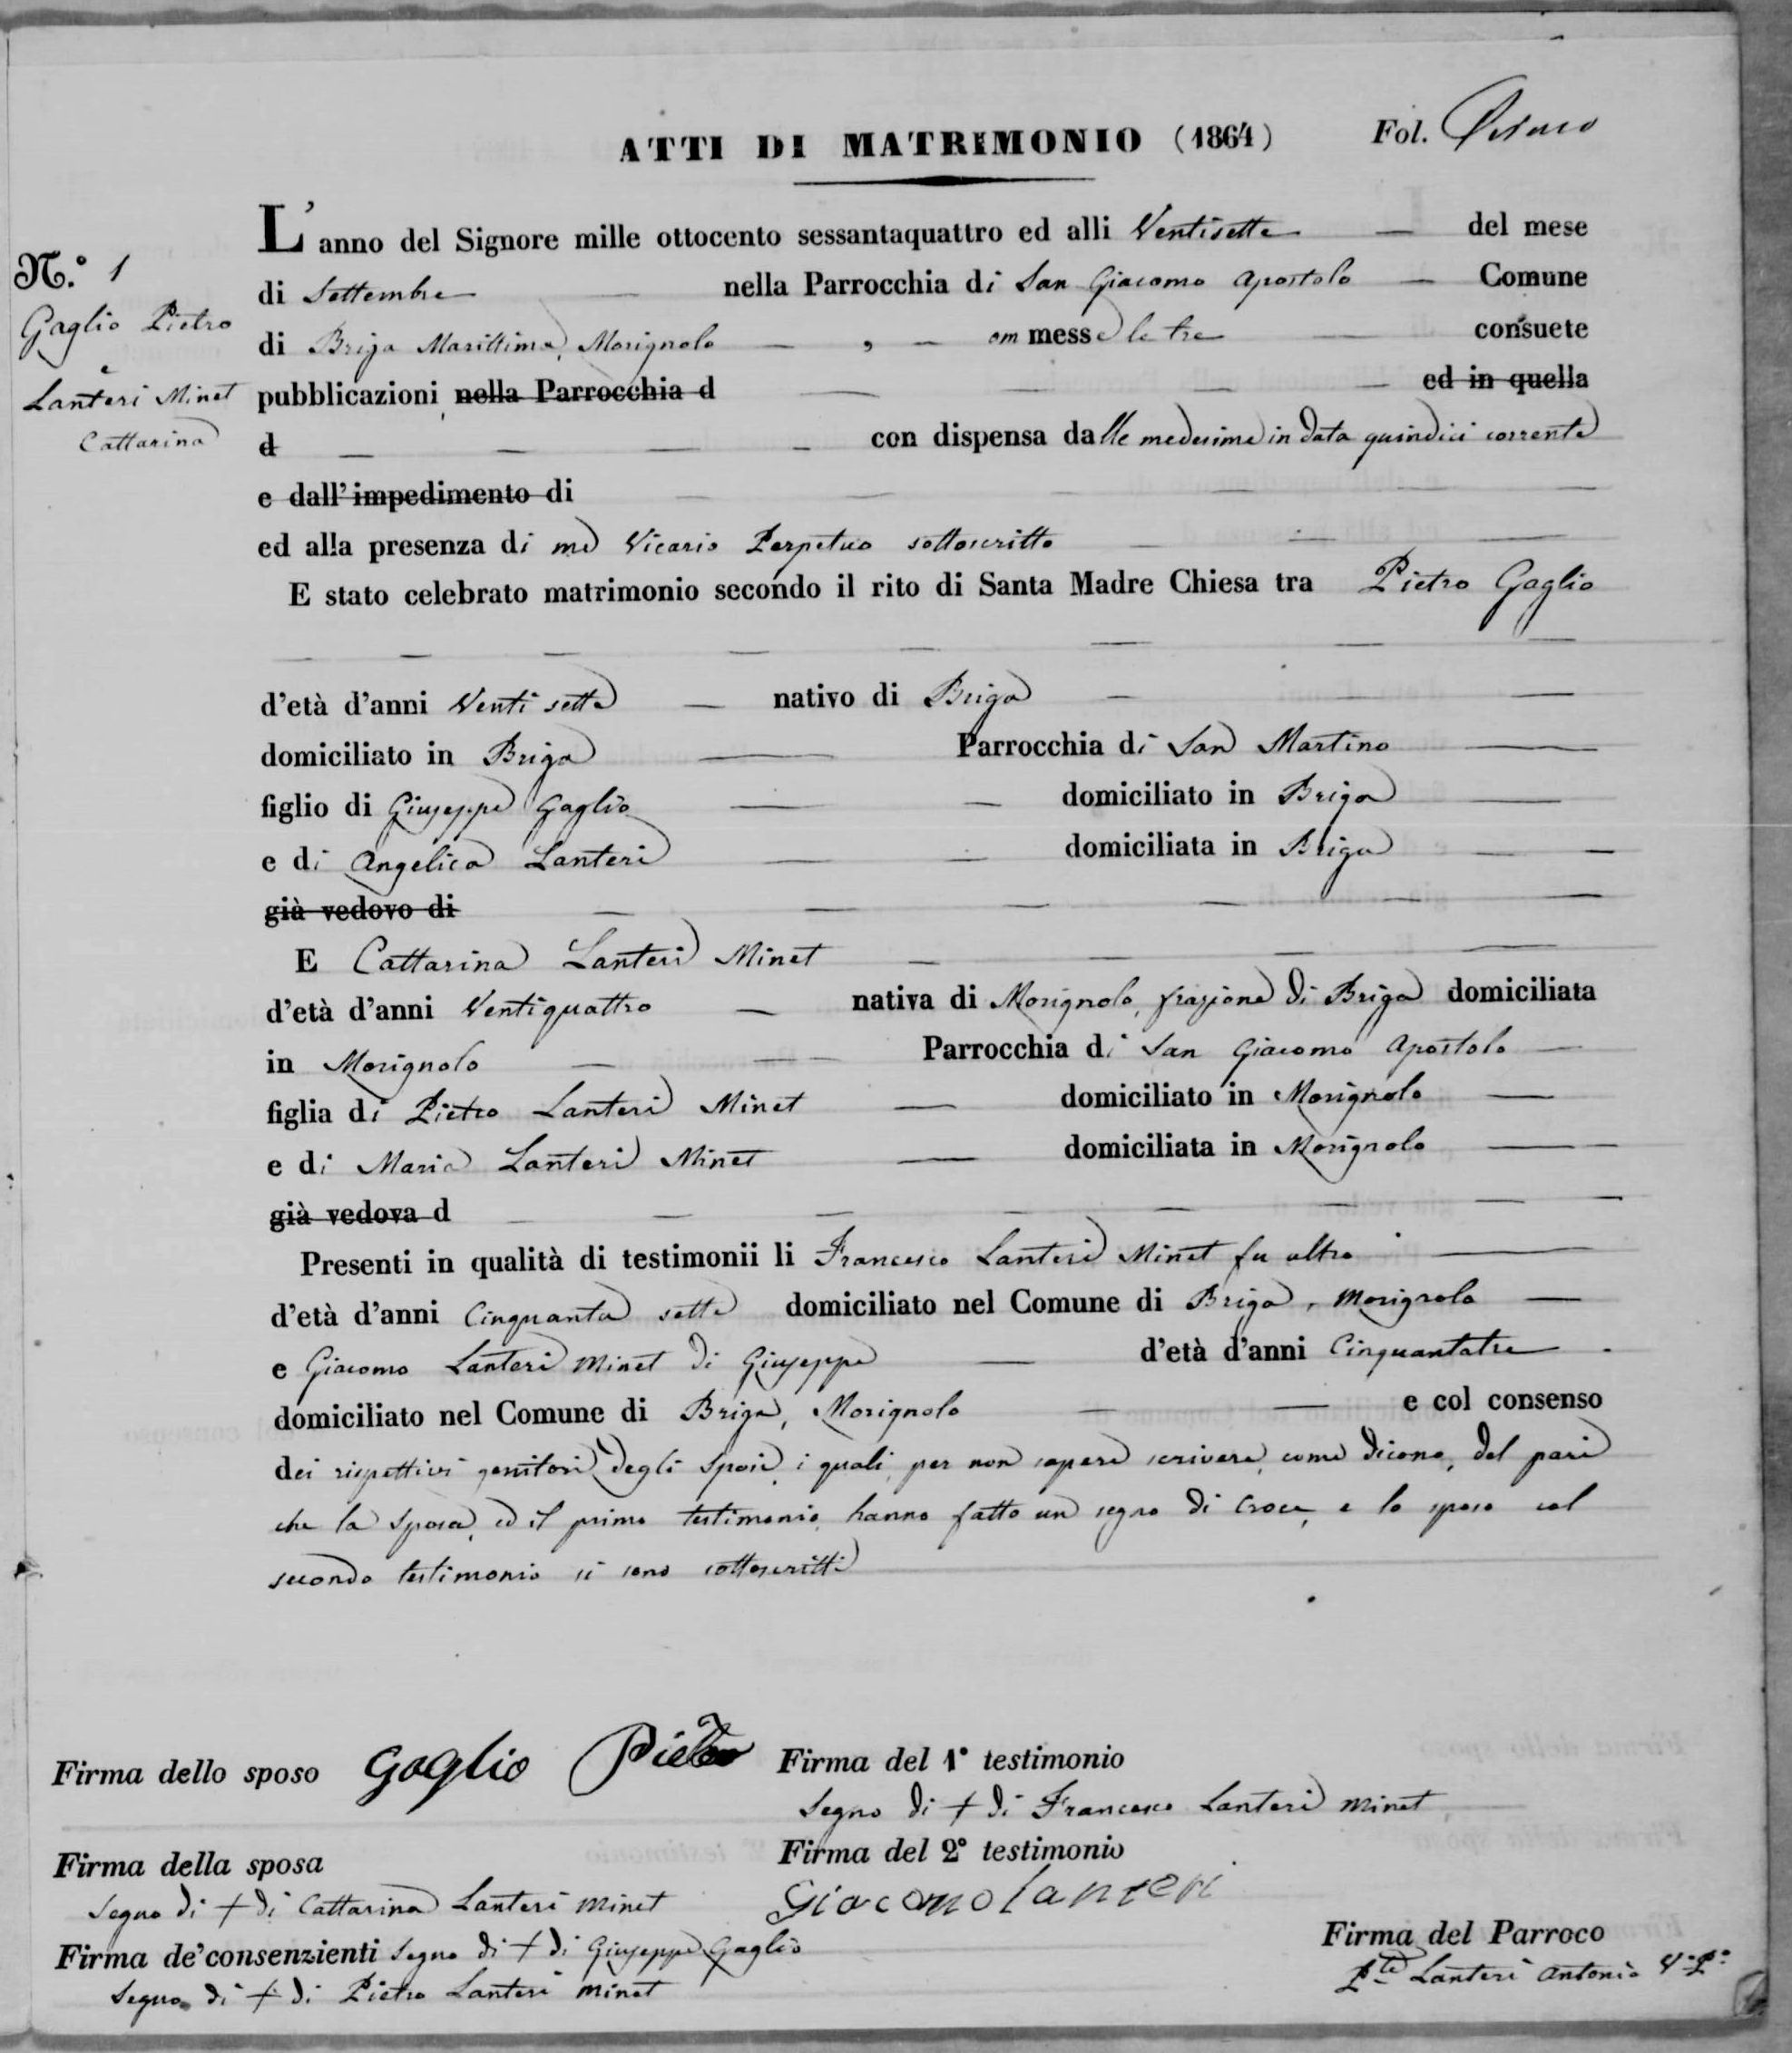 ATTI DI MATRIMONIO (1864)
Fol. Primo
N.° 1
Gaglio Pietro
e
Lanteri Minet
Cattarina
L'anno del Signore mille ottocento sessantaquattro ed alli Ventisette — del mese
di Settembre — nella Parrocchia di San Giacomo Apostolo — Comune
di Briga Marittima, Morignolo — , — ommesse le tre — consuete
pubblicazioni nella Parrocchia d — — — — ed in quella
d — — — — con dispensa dalle medesime in data quindici corrente
e dall'impedimento di — — — — — —
ed alla presenza di me Vicario Perpetuo sottoscritto — — —
E stato celebrato matrimonio secondo il rito di Santa Madre Chiesa tra Pietro Gaglio
— — — — — — — —
d'età d'anni Venti sette — nativo di Briga — — —
domiciliato in Briga — Parrocchia di San Martino —
figlio di Giuseppe Gaglio — — domiciliato in Briga —
e di Angelica Lanteri — — domiciliata in Briga — —
già vedovo di — — — — — —
E Cattarina Lanteri Minet — — — —
d'età d'anni Ventiquattro — nativa di Morignolo, frazione di Briga domiciliata
in Morignolo — — — Parrocchia di San Giacomo Apostolo —
figlia di Pietro Lanteri Minet — domiciliato in Morignolo —
e di Maria Lanteri Minet — domiciliata in Morignolo —
già vedova d — — — — — — — —
Presenti in qualità di testimonii li Francesco Lanteri Minet fu altro —
d'età d'anni Cinquanta sette domiciliato nel Comune di Briga, Morignolo —
e Giacomo Lanteri Minet di Giuseppe — d'età d'anni Cinquantatre
domiciliato nel Comune di Briga, Morignolo — — e col consenso
dei rispettivi genitori degli sposi, i quali, per non sapere scrivere, come dicono, del pari
che la sposa, ed il primo testimonio, hanno fatto un segno di croce, e lo sposo col
secondo testimonio si sono sottoscritti
Firma dello sposo Gaglio Pietro
Firma del 1° testimonio
Segno di + di Francesco Lanteri Minet
Firma della sposa
Segno di + di Cattarina Lanteri Minet
Firma del 2° testimonio
Giacomo lanteri
Firma de' consenzienti Segno di + di Giuseppe Gaglio
Segno di + di Pietro Lanteri Minet
Firma del Parroco
P.te Lanteri Antonio V.° P.°